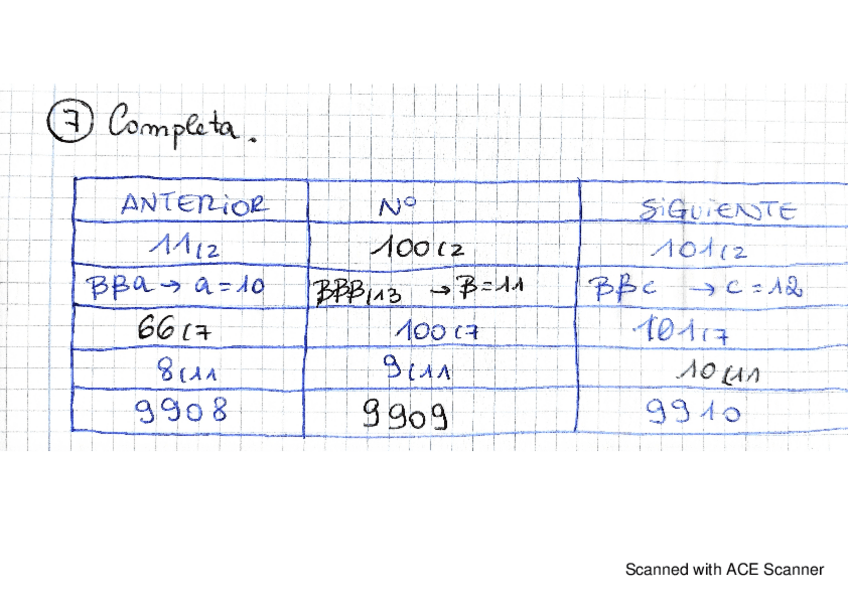 7 Completa.
ANTERIOR Nº SIGUIENTE
11(2 100(2 101(2
BBa → a=10 BBB(13 → B=11 BBc → c=12
66(7 100(7 101(7
8(11 9(11 10(11
9908 9909 9910
Scanned with ACE Scanner